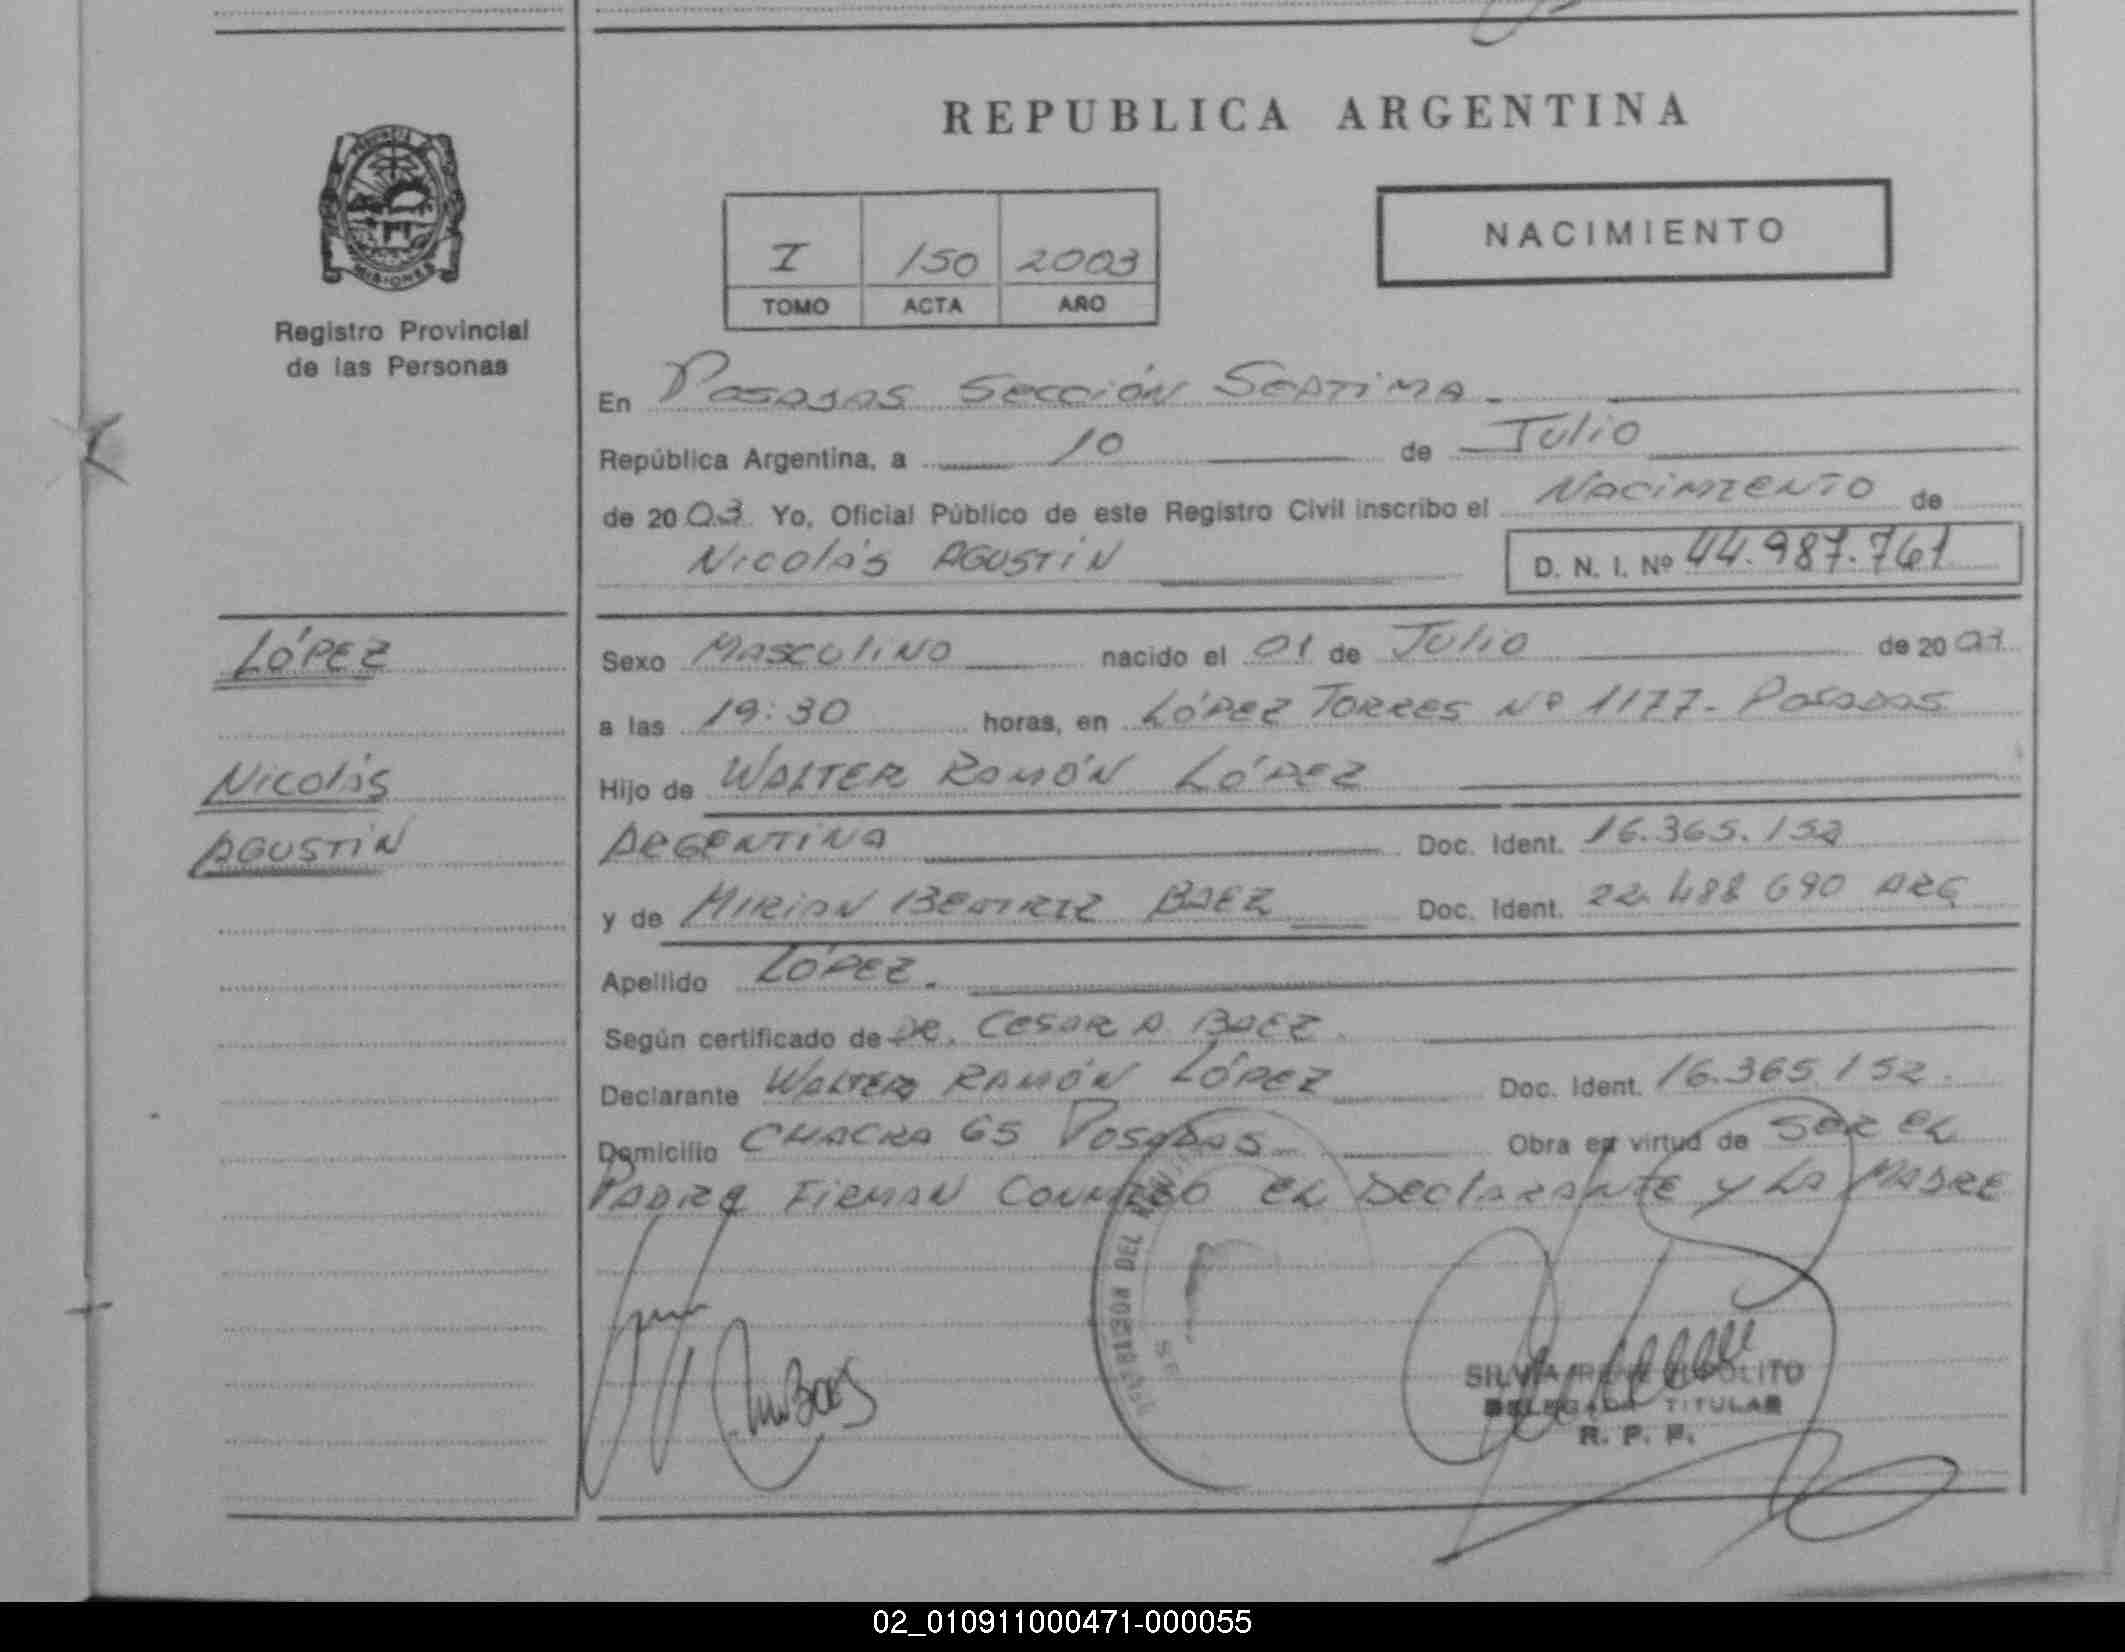 REPUBLICA ARGENTINA
PROVINCIA
MISIONES
Registro Provincial
de las Personas
I 150 2003
TOMO ACTA AÑO
NACIMIENTO
En Posadas Sección Septima.
República Argentina, a 10 de Julio
de 2003. Yo, Oficial Público de este Registro Civil inscribo el Nacimiento de
Nicolás Agustín D. N. I. Nº 44.987.761
López
Sexo Masculino nacido el 01 de Julio de 20
a las 19:30 horas, en López Torres Nº 1177 - Posadas
Nicolás
Hijo de Walter Ramón López
Agustín
Argentina Doc. Ident. 16.365.152
y de Mirian Beatriz Baez Doc. Ident. 22.488 690 Arg
Apellido López.
Según certificado de Dr. Cesar A Baez
Declarante Walter Ramón López Doc. Ident. 16.365.152.
Domicilio Chacra 65 Posadas Obra en virtud de ser el
Padre Firman Conmigo el Declarante y la Madre
DEL
SILVIA
DELEGADA TITULAR
R. P. P.
02_010911000471-000055